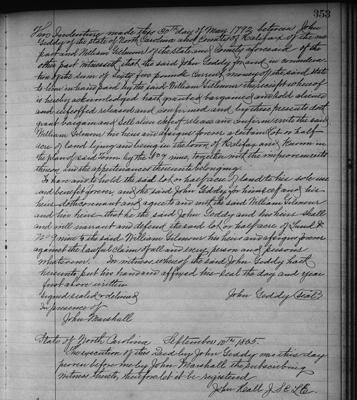 353
This Indenture made this 30th day of May 1792 between John
Geddy of the state of North Carolina and County of Halifax of the one
part and William Gilmour of the state and County aforesaid of the
other part Witnesseth, that the said John Geddy for and in considera-
tion of the sum of sixty five pounds current money of the said state
to him in hand paid by the said William Gilmour the receipt whereof
is hereby acknowledged hath granted bargained and sold aliened
and enfeoffed released and confirmed and by these presents doth
grant bargain and sell alien enfeoff release and confirm unto the said
William Gilmour his heirs and assigns forever a certain lot or half
acre of land lying and being in the town of Halifax and known in
the plan of said town by the No 9 nine, together with the improvements
thereon and the appurtenances thereunto belonging
To have and to hold the said lot or half acre of land to his sole use
and benefit forever and the said John Geddy for himself and his
heirs doth covenant and agree to and with the said William Gilmour
and his heirs that he the said John Geddy and his heirs shall
and will warrant and defend the said lot or half acre of land
No 9 nine to the said William Gilmour his heirs and assigns forever
against the lawful claims of all and every person and persons
whatsoever. In witness whereof the said John Geddy hath
hereunto put his hand and affixed his seal the day and year
first above written
Signed sealed & delivered
in presence of
John Geddy (Seal)
John Marshall
State of North Carolina September 10th 1805.
The execution of this deed by John Geddy was this day
proven before me by John Marshall the subscribing
witness thereto, therefore let it be registered
John Hall J S C L E